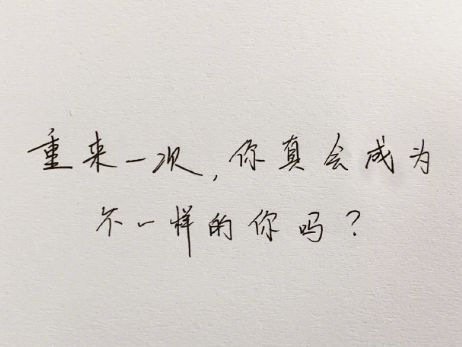 重来一次,你真会成为
不一样的你吗?